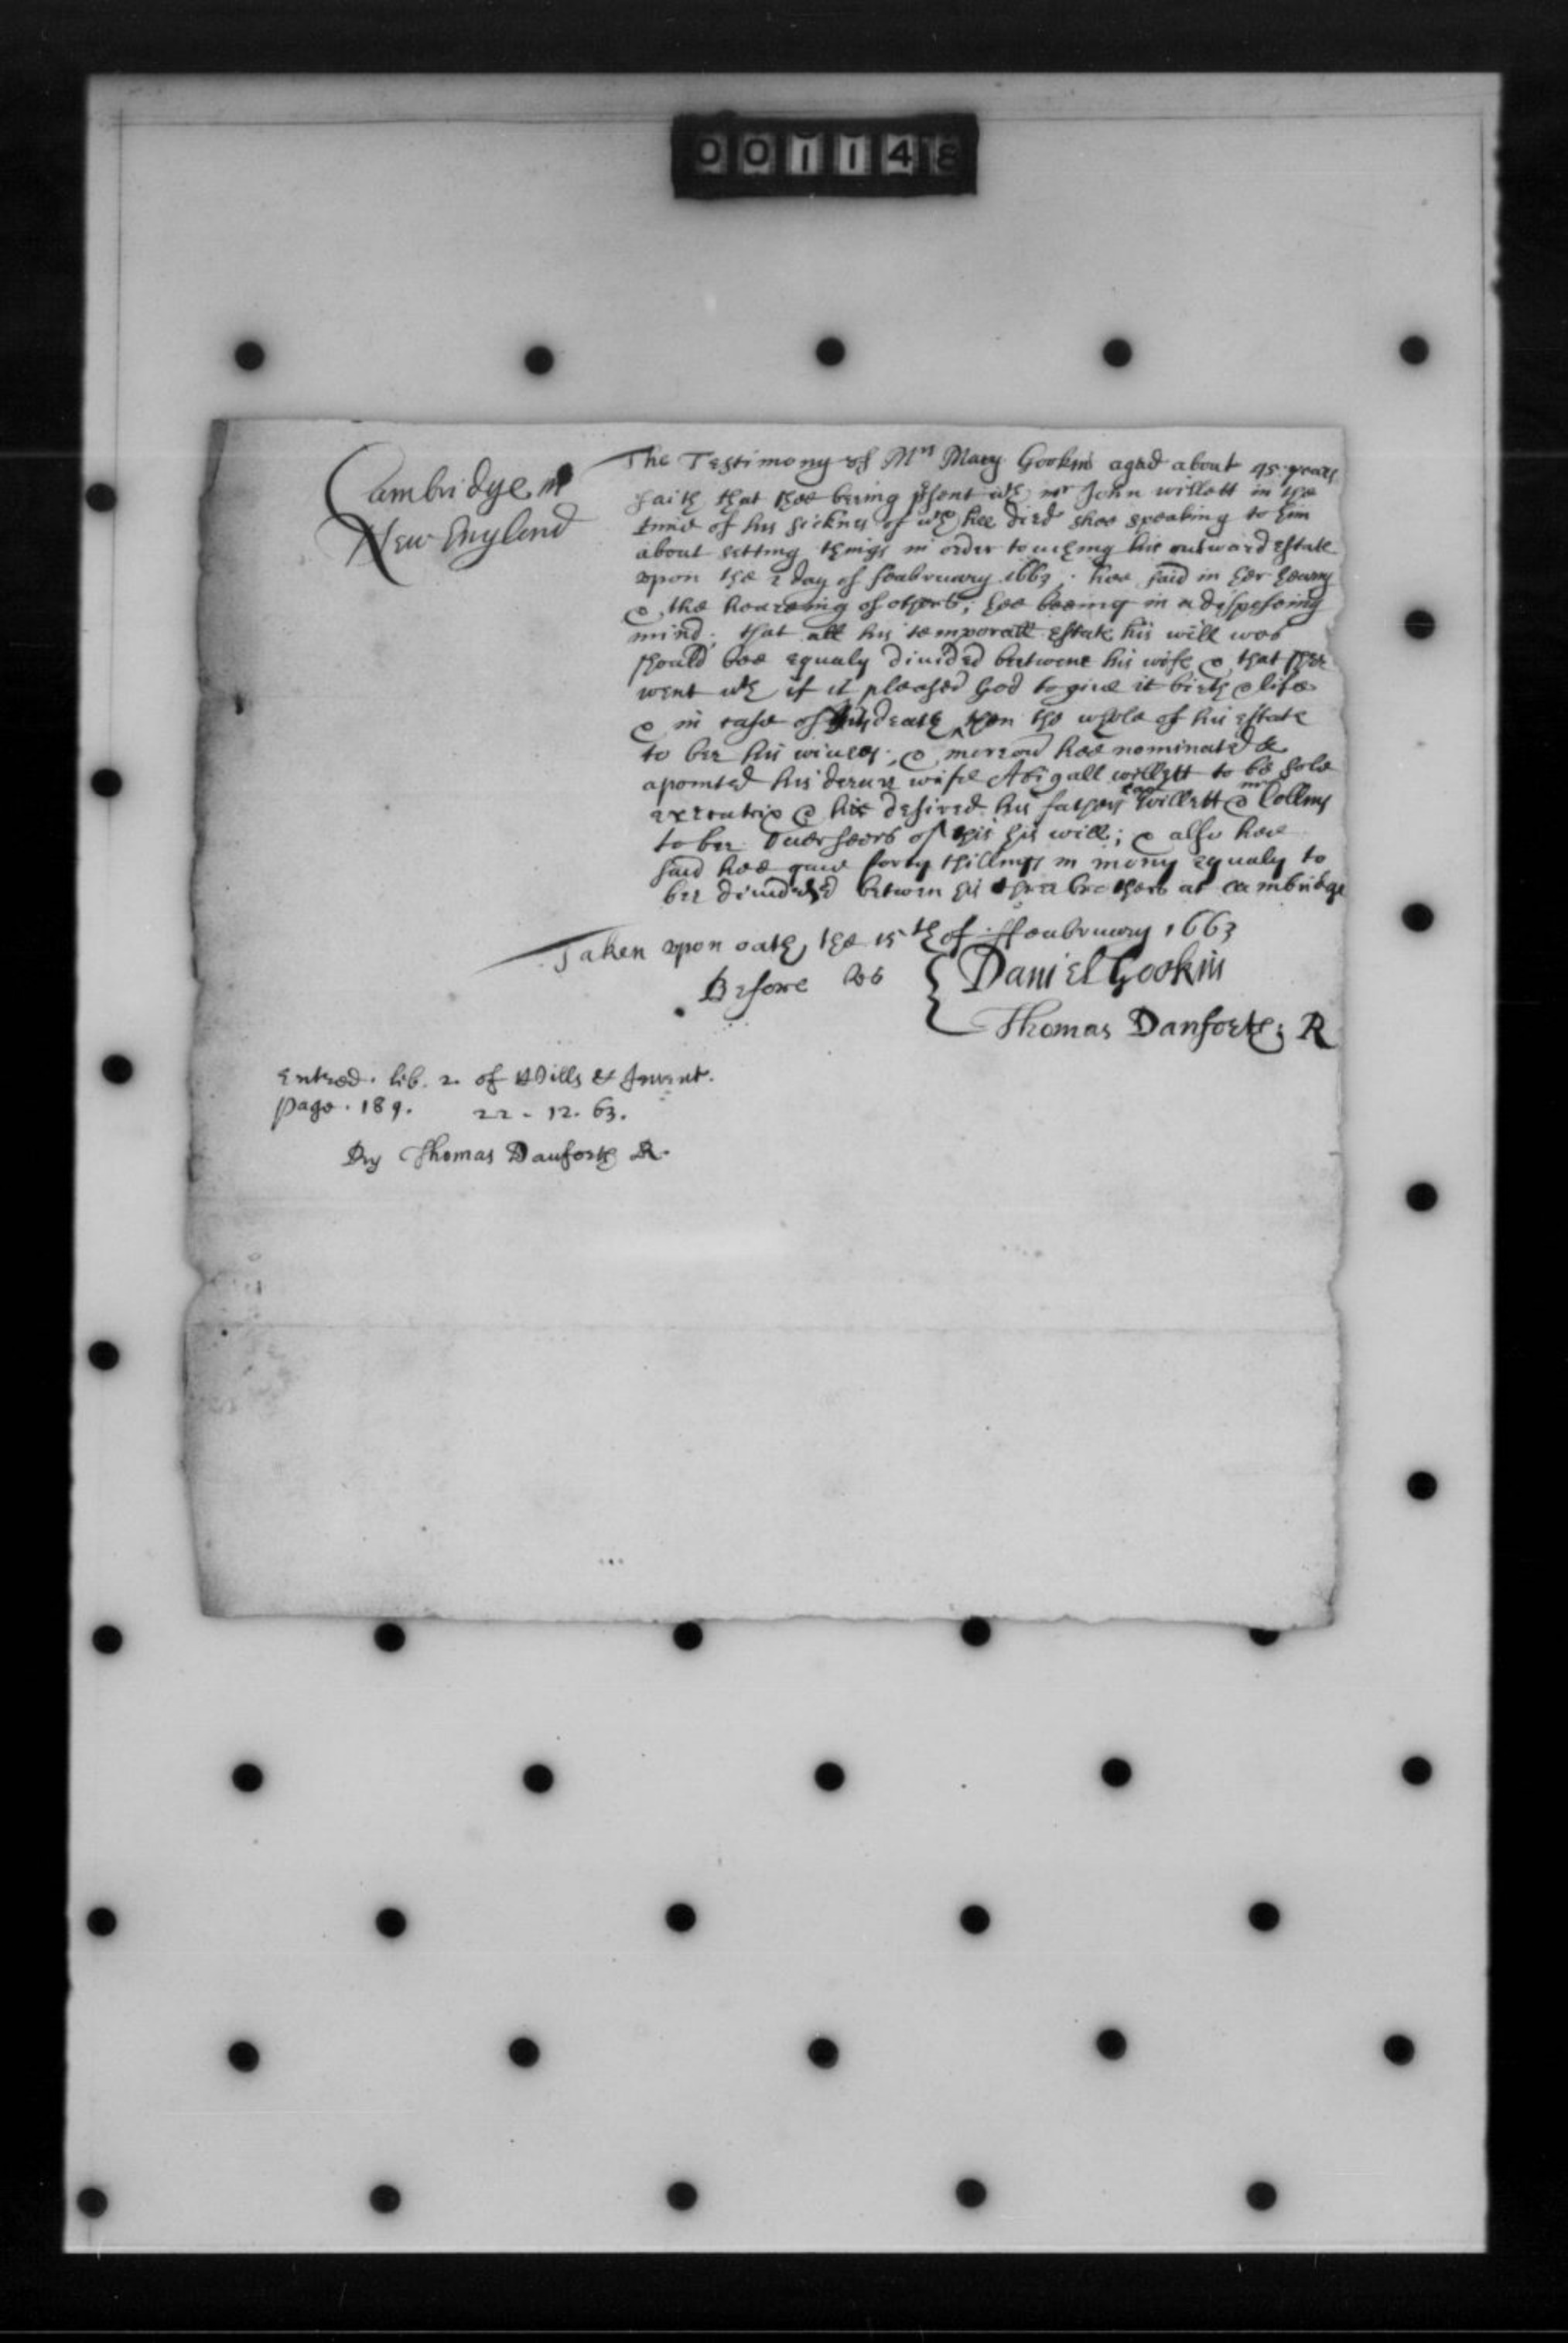 001148
Cambridge in
New England
The Testimony of Mrs Mary Gookin aged about 45 years
saith that shee being psent wth mr John willett in the
time of his sicknes of wch hee died shee speaking to him
about setting things in order touching his outward estate
upon the 2 day of feabruary 1663, hee said in her hearing
& the heareing of others, hee beeing in a disposeing
mind; that all his temporall estate his will was
should bee equaly divided betwene his wife & that shee
went wth if it pleased God to give it birth & life
& in case of its death then the whole of his estate
to bee his wives; & moreover hee nominated &
apointed his deare wife Abigall willett to be sole
executrix & hee desired his fathers Willett & mr Collins
to bee overseers of this his will; & also hee
said hee gave forty shillings in mony equaly to
bee divided between his three brothers at cambridge
Taken upon oath, the 15th of ffeabruary 1663
Before us { Daniel Gookin
Thomas Danforth; R
Entred. lib. 2. of Wills & Invent.
page. 189. 22-12. 63.
By Thomas Danforth R.